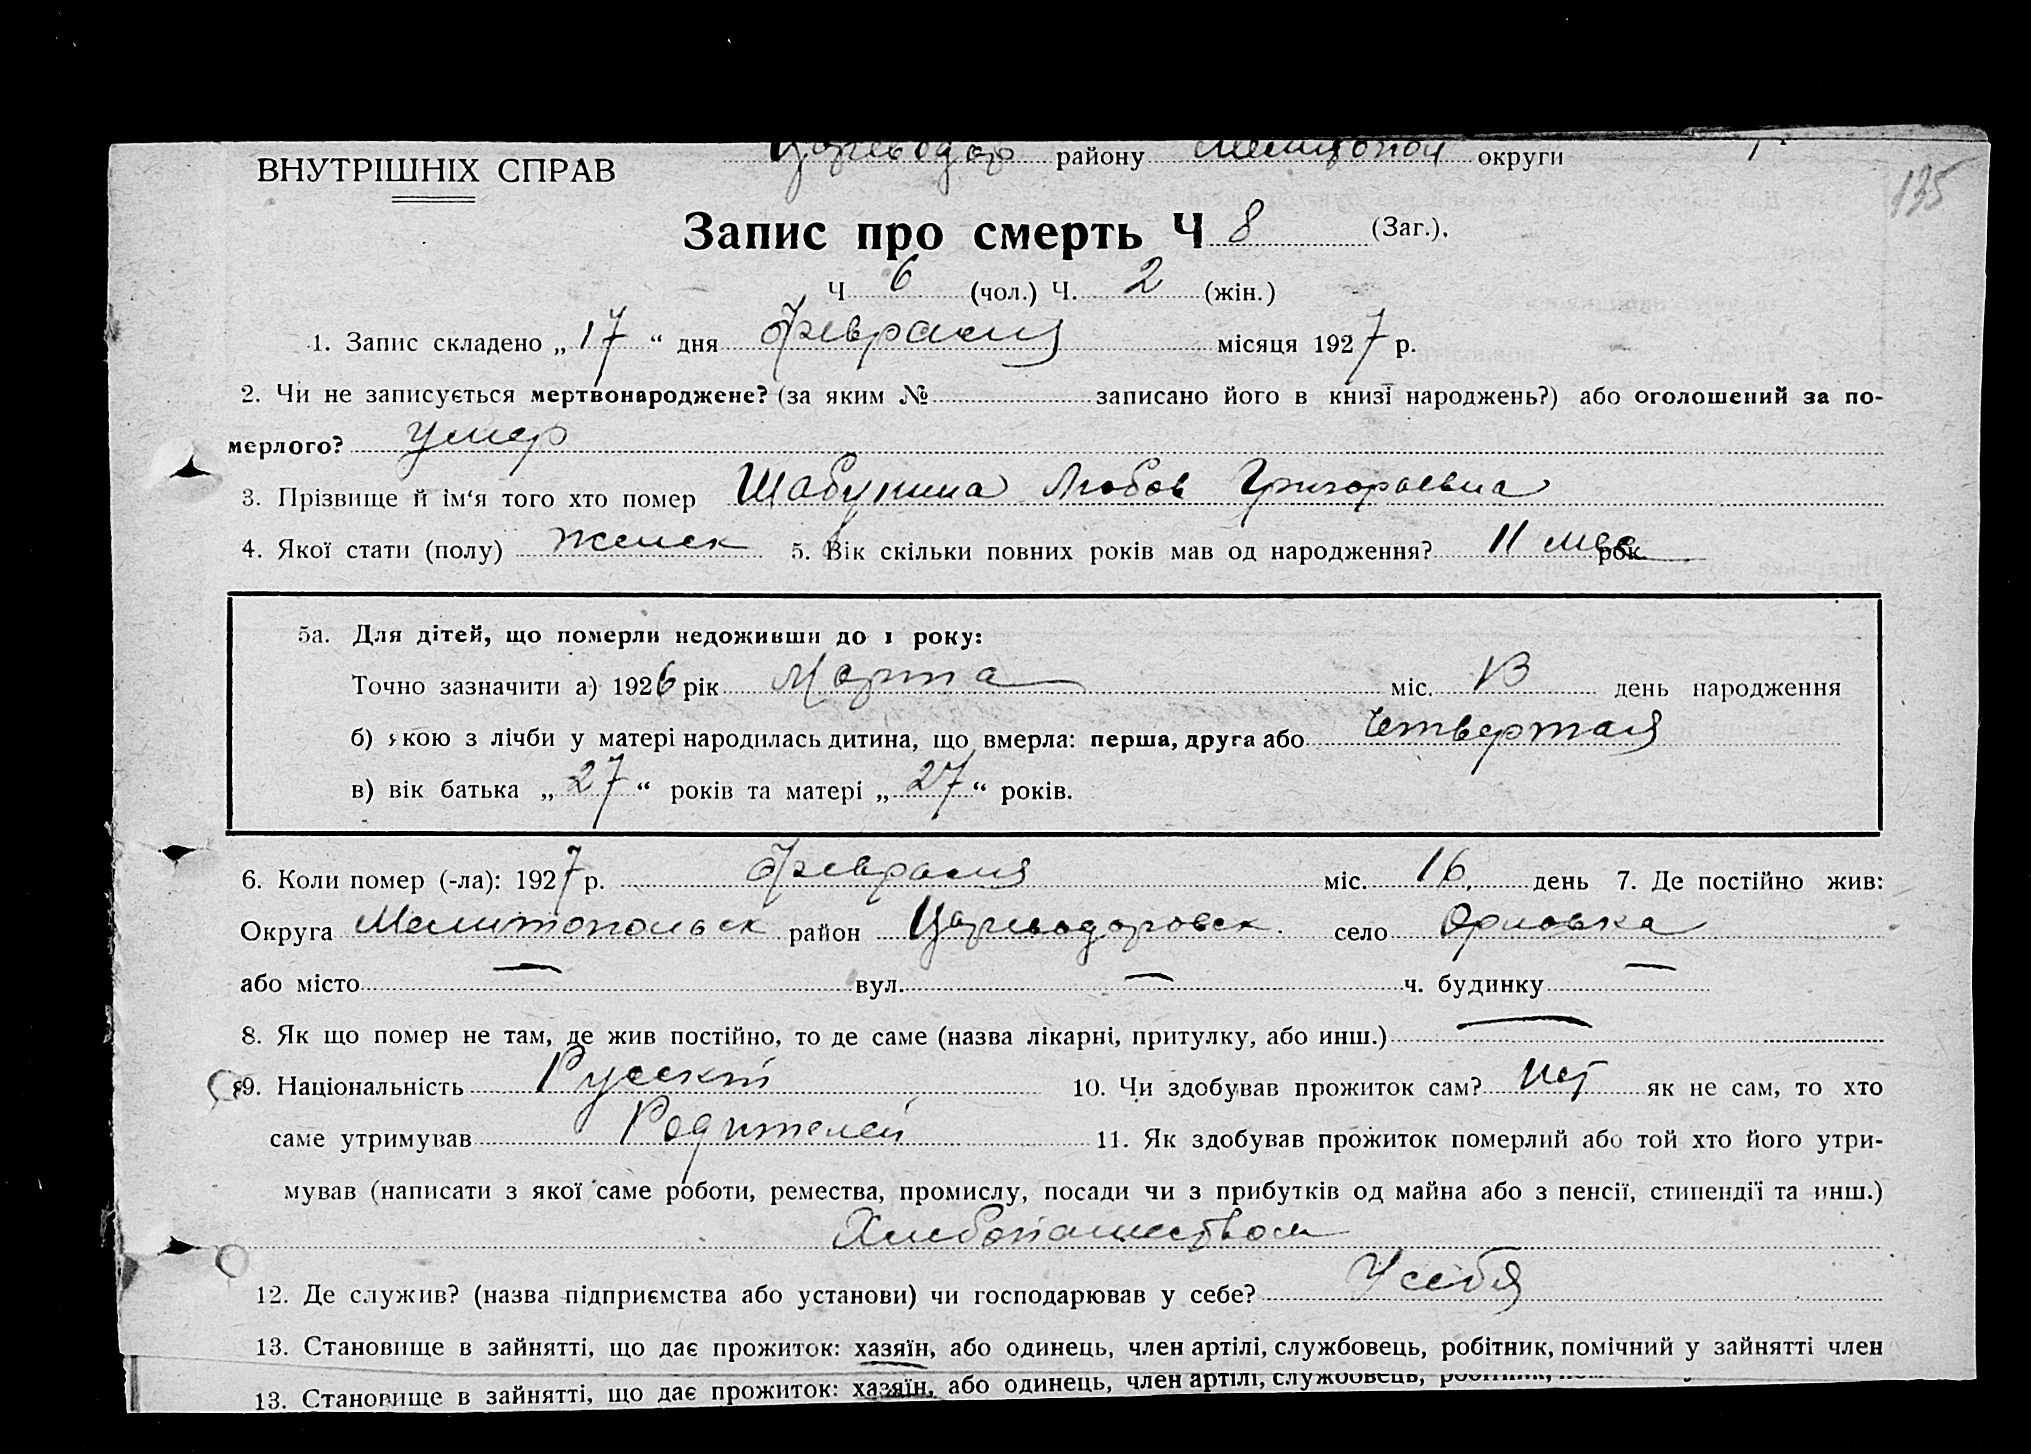 ВНУТРІШНІХ СПРАВ району округи
135
Запис про смерть Ч 8 (Заг.).
Ч 6 (чол.) Ч. 2 (жін.)
1. Запис складено „ 17 “ дня Февраля місяця 1927 р.
2. Чи не записується мертвонароджене? (за яким № записано його в книзі народжень?) або оголошений за по-
мерлого? умер
3. Прізвище й ім‘я того хто помер Шабунина Любов Григораевна
4. Якої стати (полу) женск 5. Вік скільки повних років мав од народження? 11 мес рок
5а. Для дітей, що померли недоживши до 1 року:
Точно зазначити а) 1926 рік Марта міс. 13 день народження
б) якою з лічби у матері народилась дитина, що вмерла: перша, друга або Четвертая
в) вік батька „ 27 “ років та матері „ 27 “ років.
6. Коли помер (-ла): 1927 р. Февраля міс. 16 день 7. Де постійно жив:
Округа Мелитопольск район Цареводаровск. село Орловка
або місто — вул. — ч. будинку —
8. Як що помер не там, де жив постійно, то де саме (назва лікарні, притулку, або инш.) —
9. Національність Русский 10. Чи здобував прожиток сам? Нет як не сам, то хто
саме утримував Родителей 11. Як здобував прожиток померлий або той хто його утри-
мував (написати з якої саме роботи, ремества, промислу, посади чи з прибутків од майна або з пенсії, стипендії та инш.)
Хлебопашеством
12. Де служив? (назва підприємства або установи) чи господарював у себе? У себя
13. Становище в зайнятті, що дає прожиток: хазяїн, або одинець, член артілі, службовець, робітник, помічний у зайнятті член
13. Становище в зайнятті, що дає прожиток: хазяїн, або одинець, член артілі, службовець,